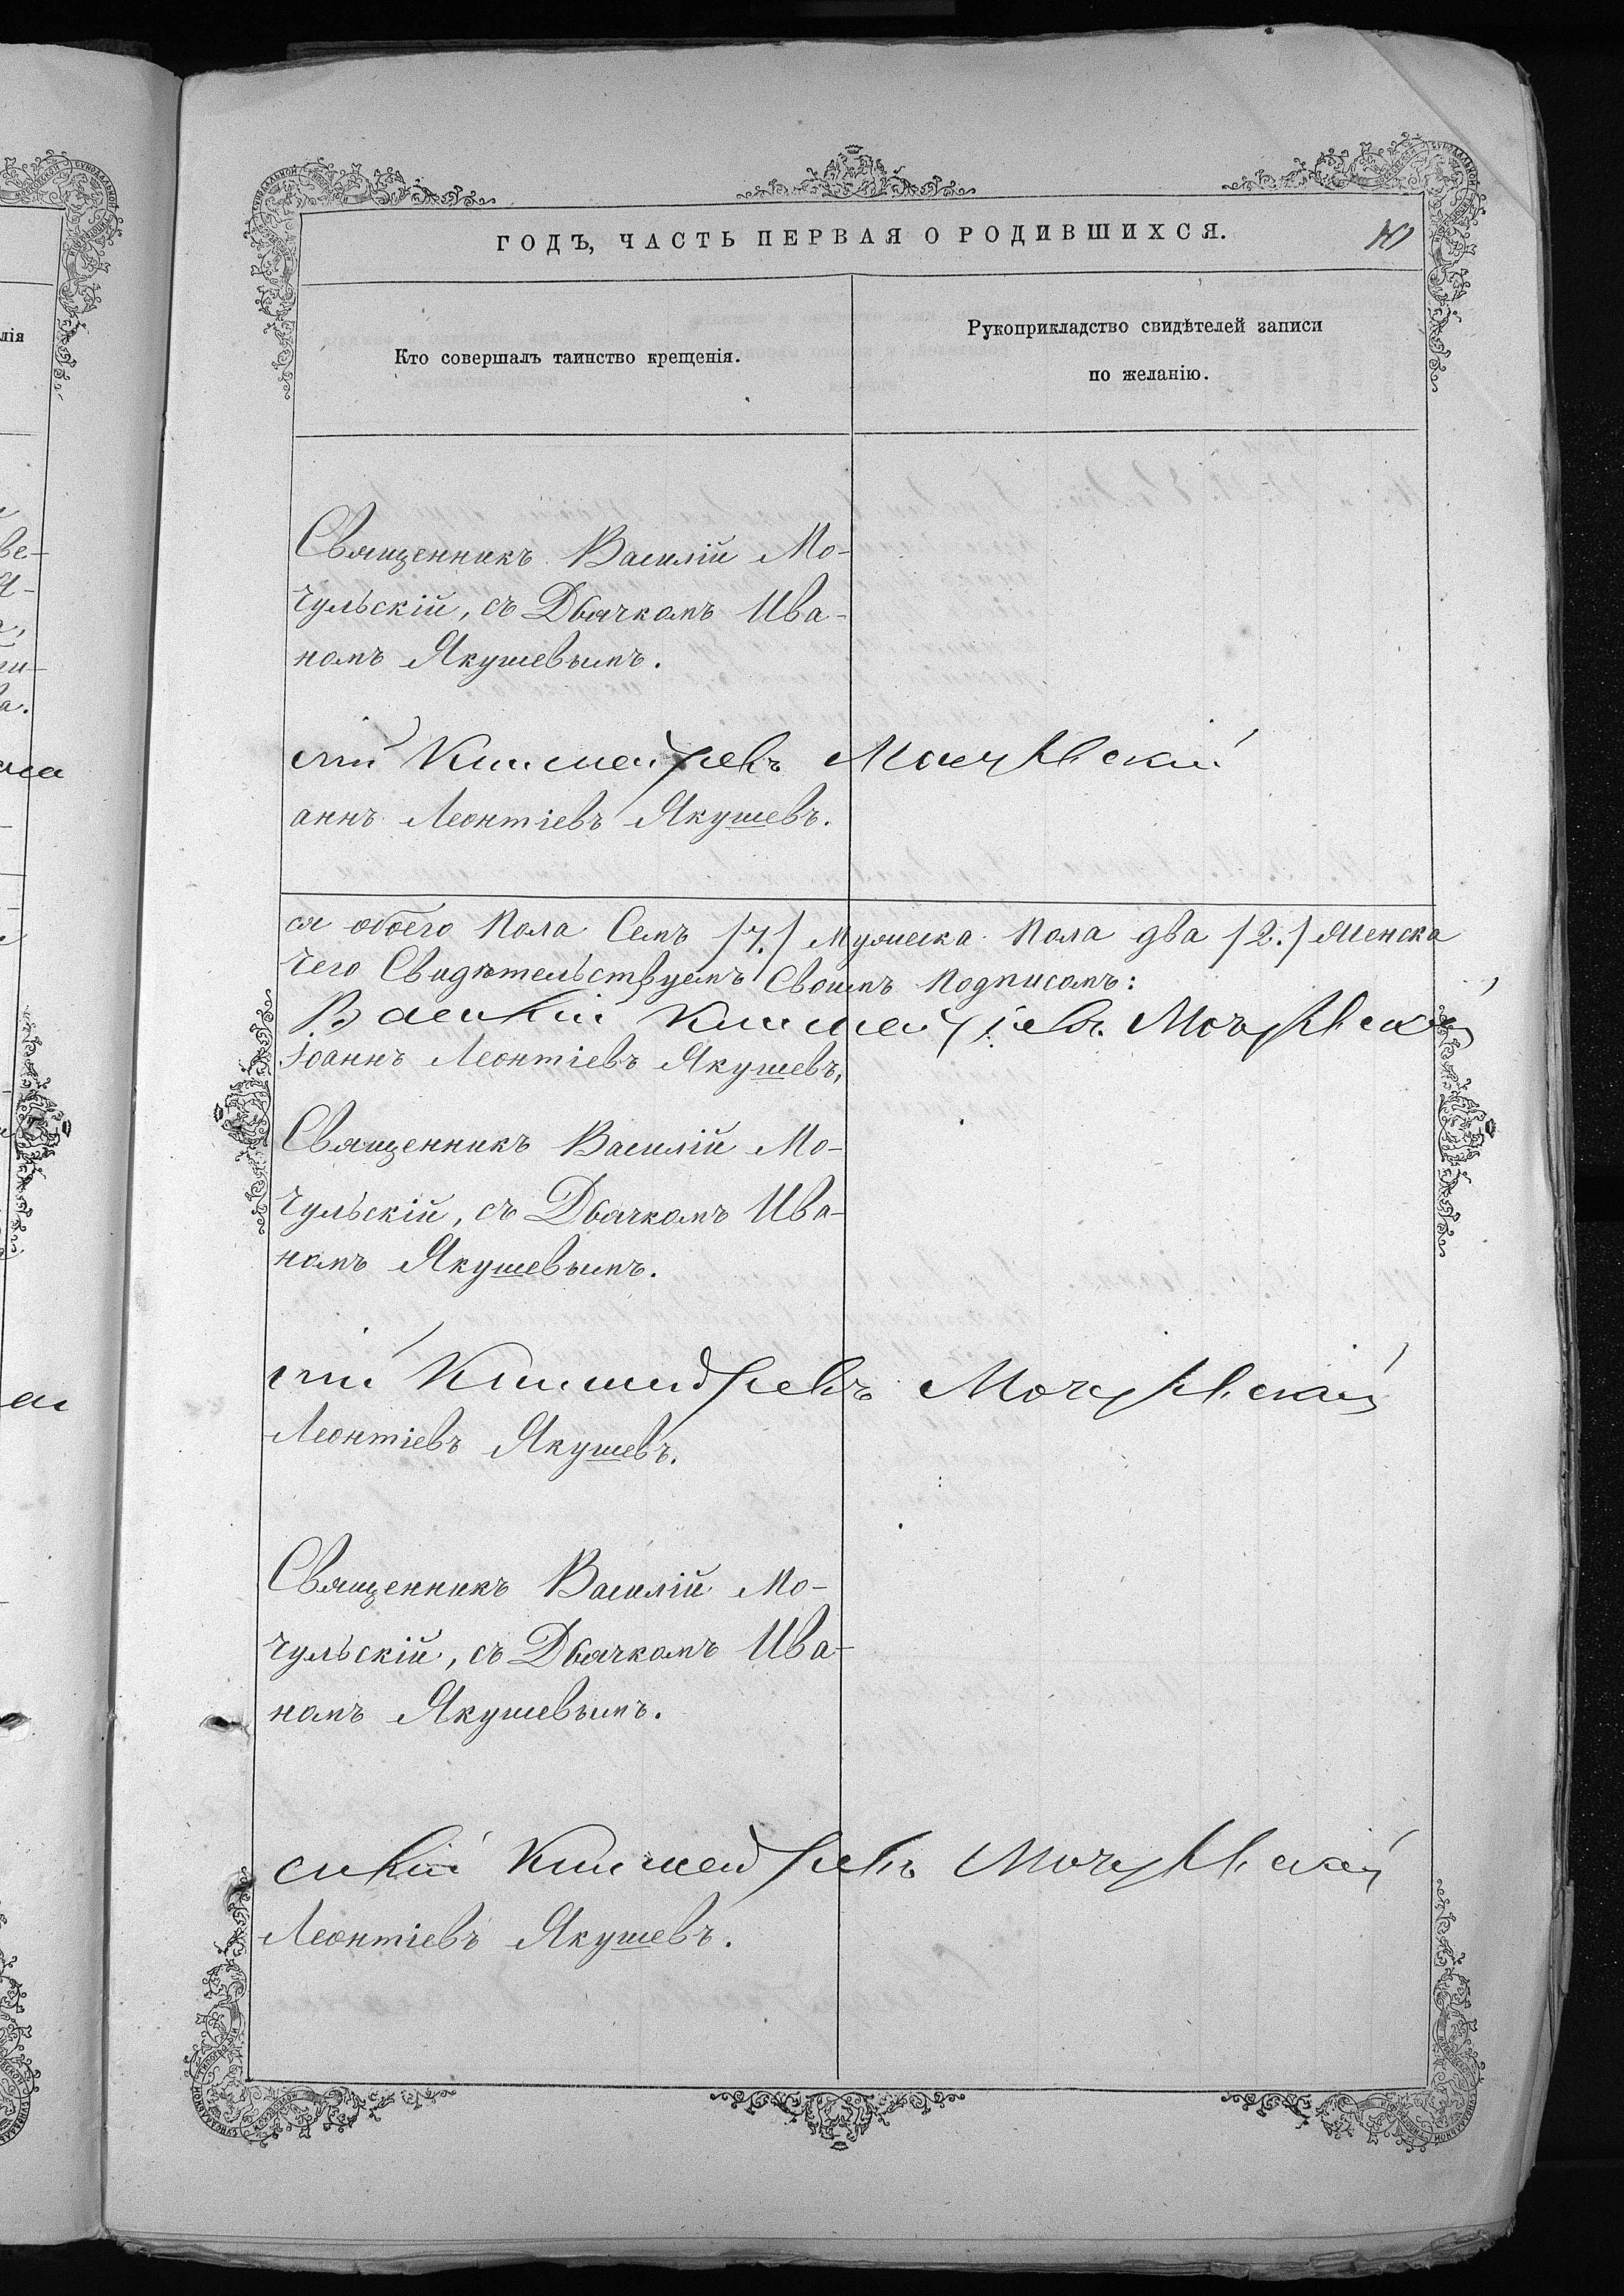 ГОДЪ, ЧАСТЬ ПЕРВАЯ О РОДИВШИХСЯ.
Кто совершалъ таинство крещенія.
Рукоприкладство свидѣтелей записи
по желанію.
лія
Священникъ Василій Мо-
чульскій, съ Дьячкомъ Ива-
номъ Якушевымъ.
Мочульскій
аннъ Леонтіевъ Якушевъ.
ся обоего Пола Семъ /7./ Мужеска Пола два /2./ Женска
чего Свидѣтельствуемъ Своимъ Подписомъ:
Василій Мочульскій
Іоаннъ Леонтіевъ Якушевъ,
Священникъ Василій Мо-
чульскій, съ Дьячкомъ Ива-
номъ Якушевымъ.
Мочульскій
Леонтіевъ Якушевъ.
Священникъ Василій Мо-
чульскій, съ Дьячкомъ Ива-
номъ Якушевымъ.
силій Мочульскій
Леонтіевъ Якушевъ.